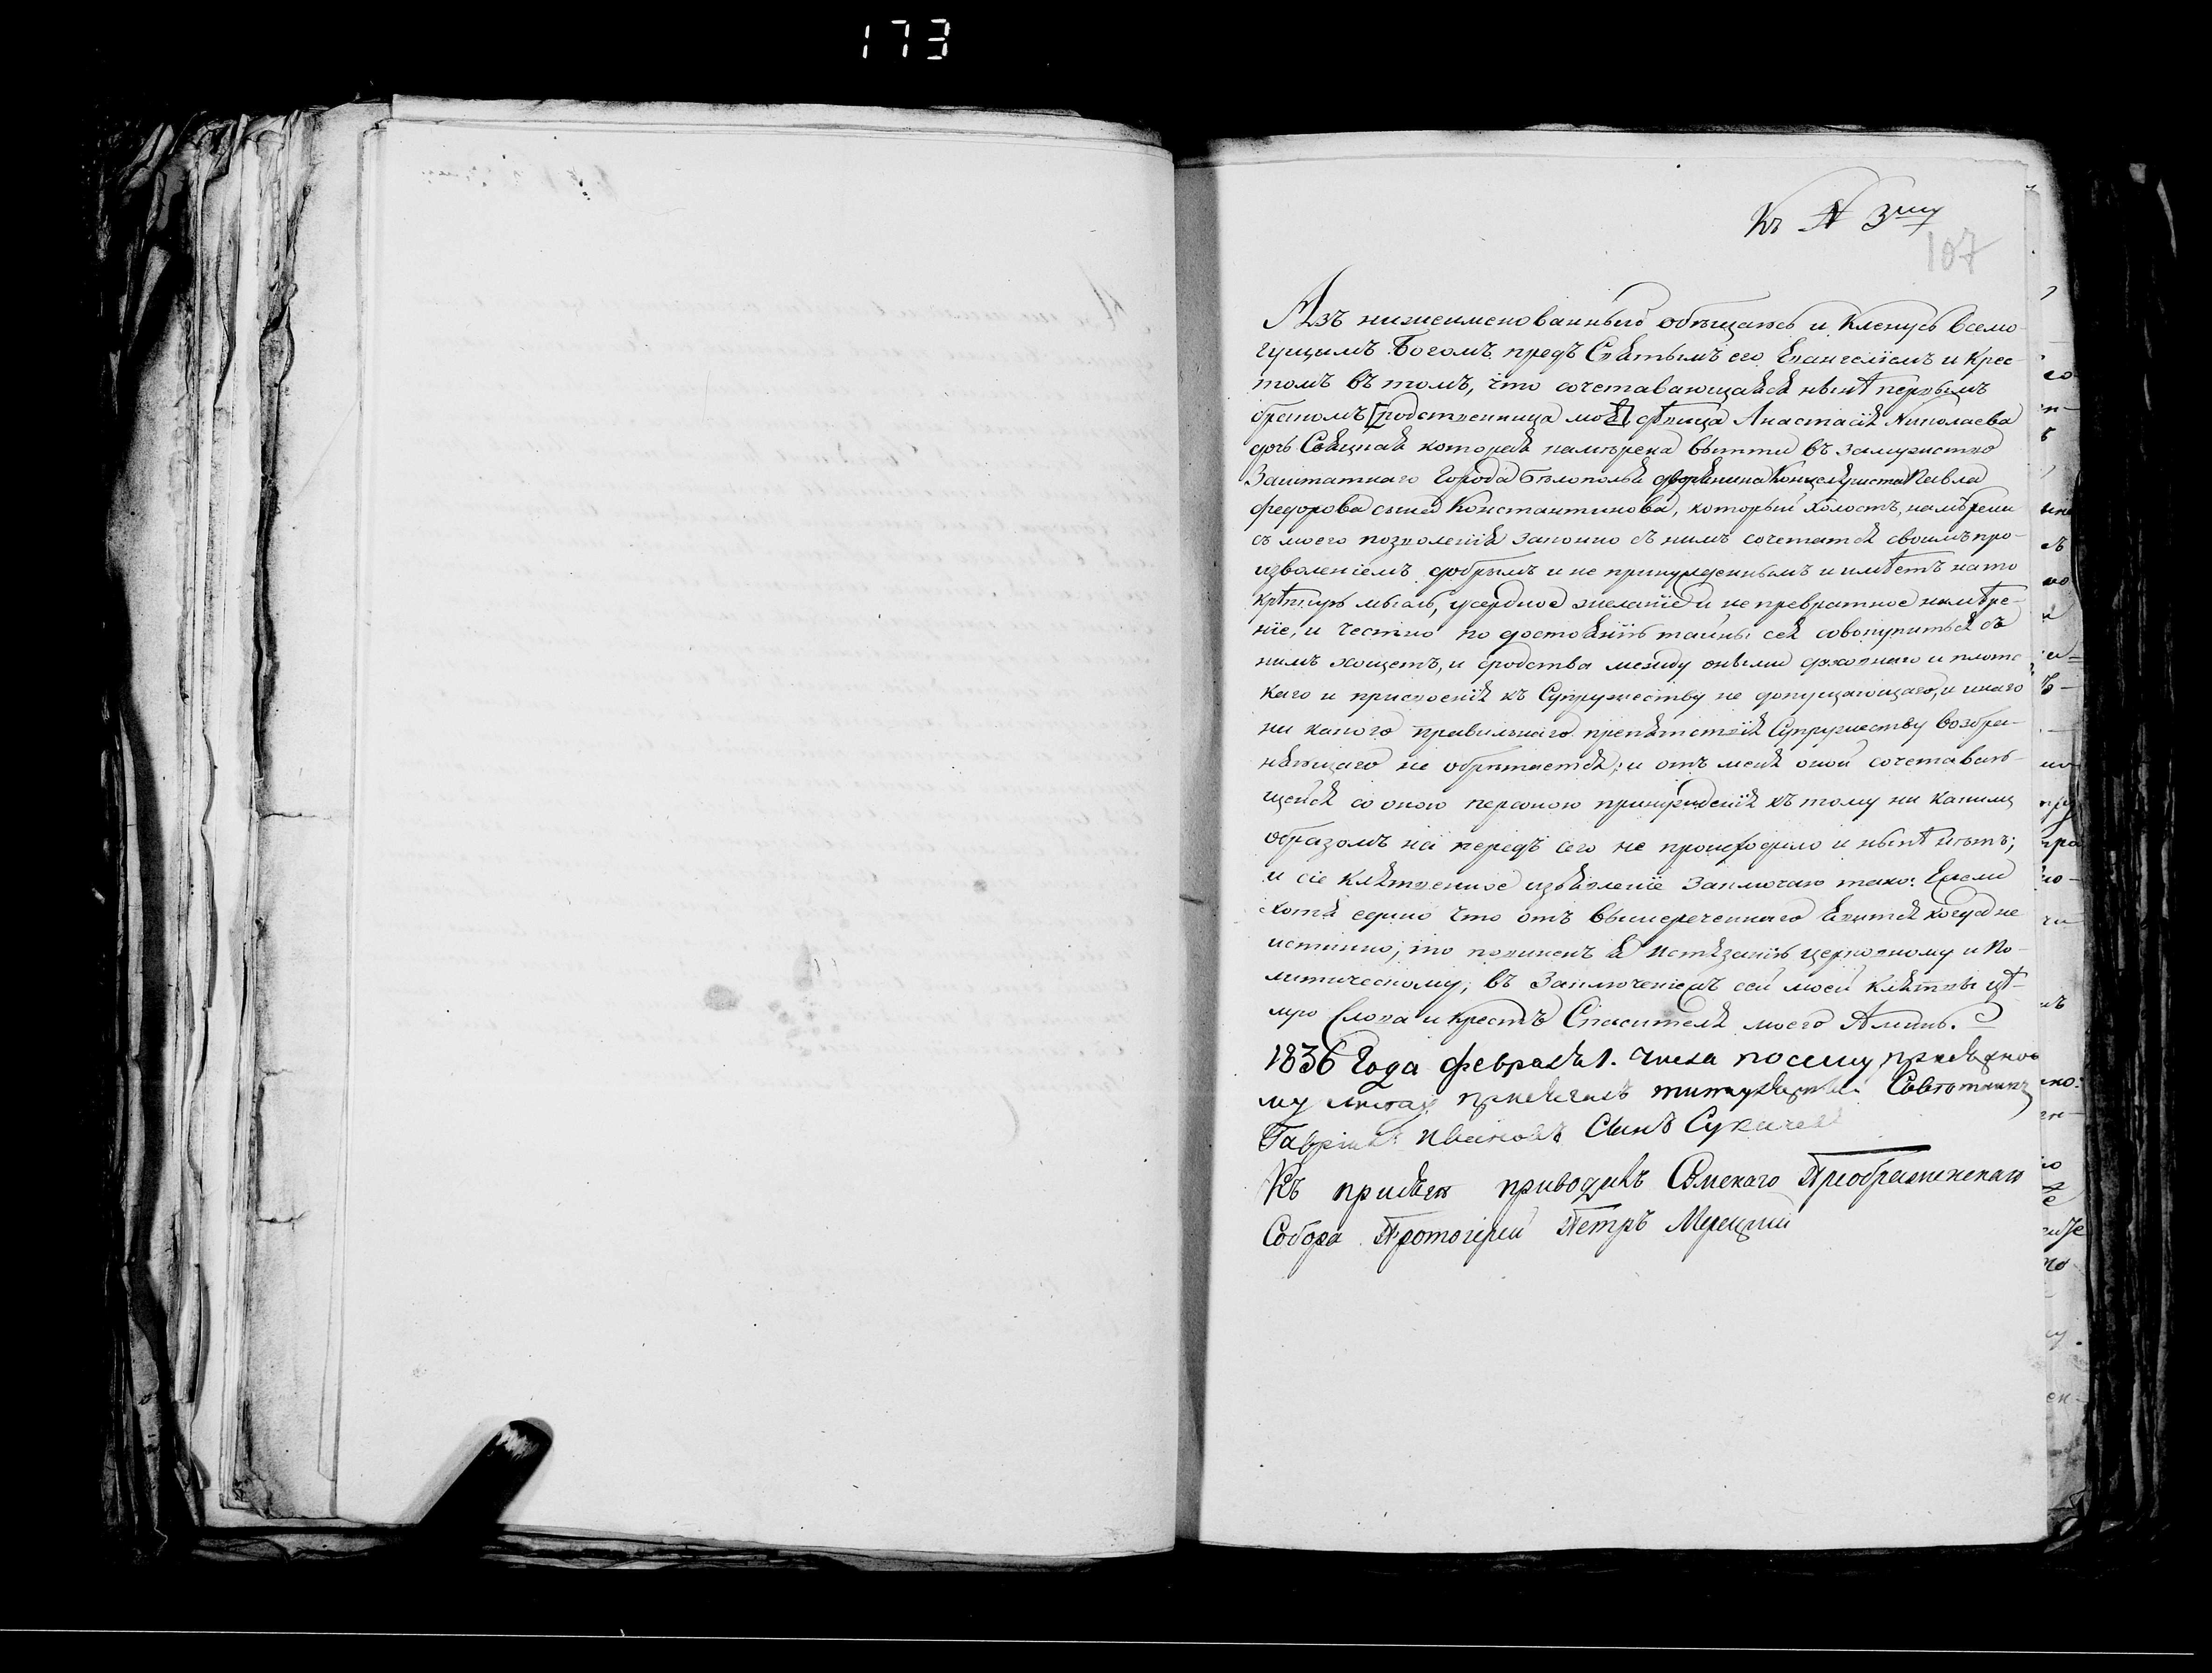 173
Къ № 3му
107
Азъ нижеименованный обѣщаюсь и кленусь всемо-
гущимъ Богомъ предъ Святымъ его Евангелїемъ и крес-
томъ въ томъ, что сочетавающаяся нынѣ первымъ
бракомъ [родственница моя] дѣвица Анастасія Николаева
дочь которая намѣрена вытти въ замужество
Заштатнаго Города Бѣлополья дворянина Канцеляриста Павла
Федорова сына Константинова, который холостъ, намѣрена
съ моего позволенія законно съ нимъ сочетатся своимъ про-
изволеніемъ добрымъ и не принужденнымъ и имѣетъ на то
крѣпкую мысль, усердное желаніе и не превратное намѣре-
ніе, и честно по достоянію тайны сея совокупиться съ
нимъ хощетъ, и сродства между оными духовнаго и плотс-
каго и присвоенія къ Супружеству не допущающаго, и инаго
ни какого правильнаго препятствія Супружеству возбра-
няющаго не обрѣтается; и отъ меня оной сочетаваю-
щейся со оною персоною принужденія къ тому ни какимъ
образомъ на передъ сего не происходило и нынѣ нѣтъ;
и сіе клятвенное изъявленіе заключаю тако: Ежели
хотя едино что отъ вышереченнаго явится когда не
истинно, то повиненъ я истязанію церковному и По-
литическому, въ Заключеніемъ сей моей клятвы цѣ-
лую Слова и крестъ Спасителя моего Аминь.
1836 Года февраля 1. числа посему присяжно-
му листу присягалъ титулярный Совѣтникъ
Гавріилъ Ивановъ Сынъ Сукачевъ
Къ присягѣ приводилъ Сумскаго Преображенскаго
Собора Протоіерей Петръ